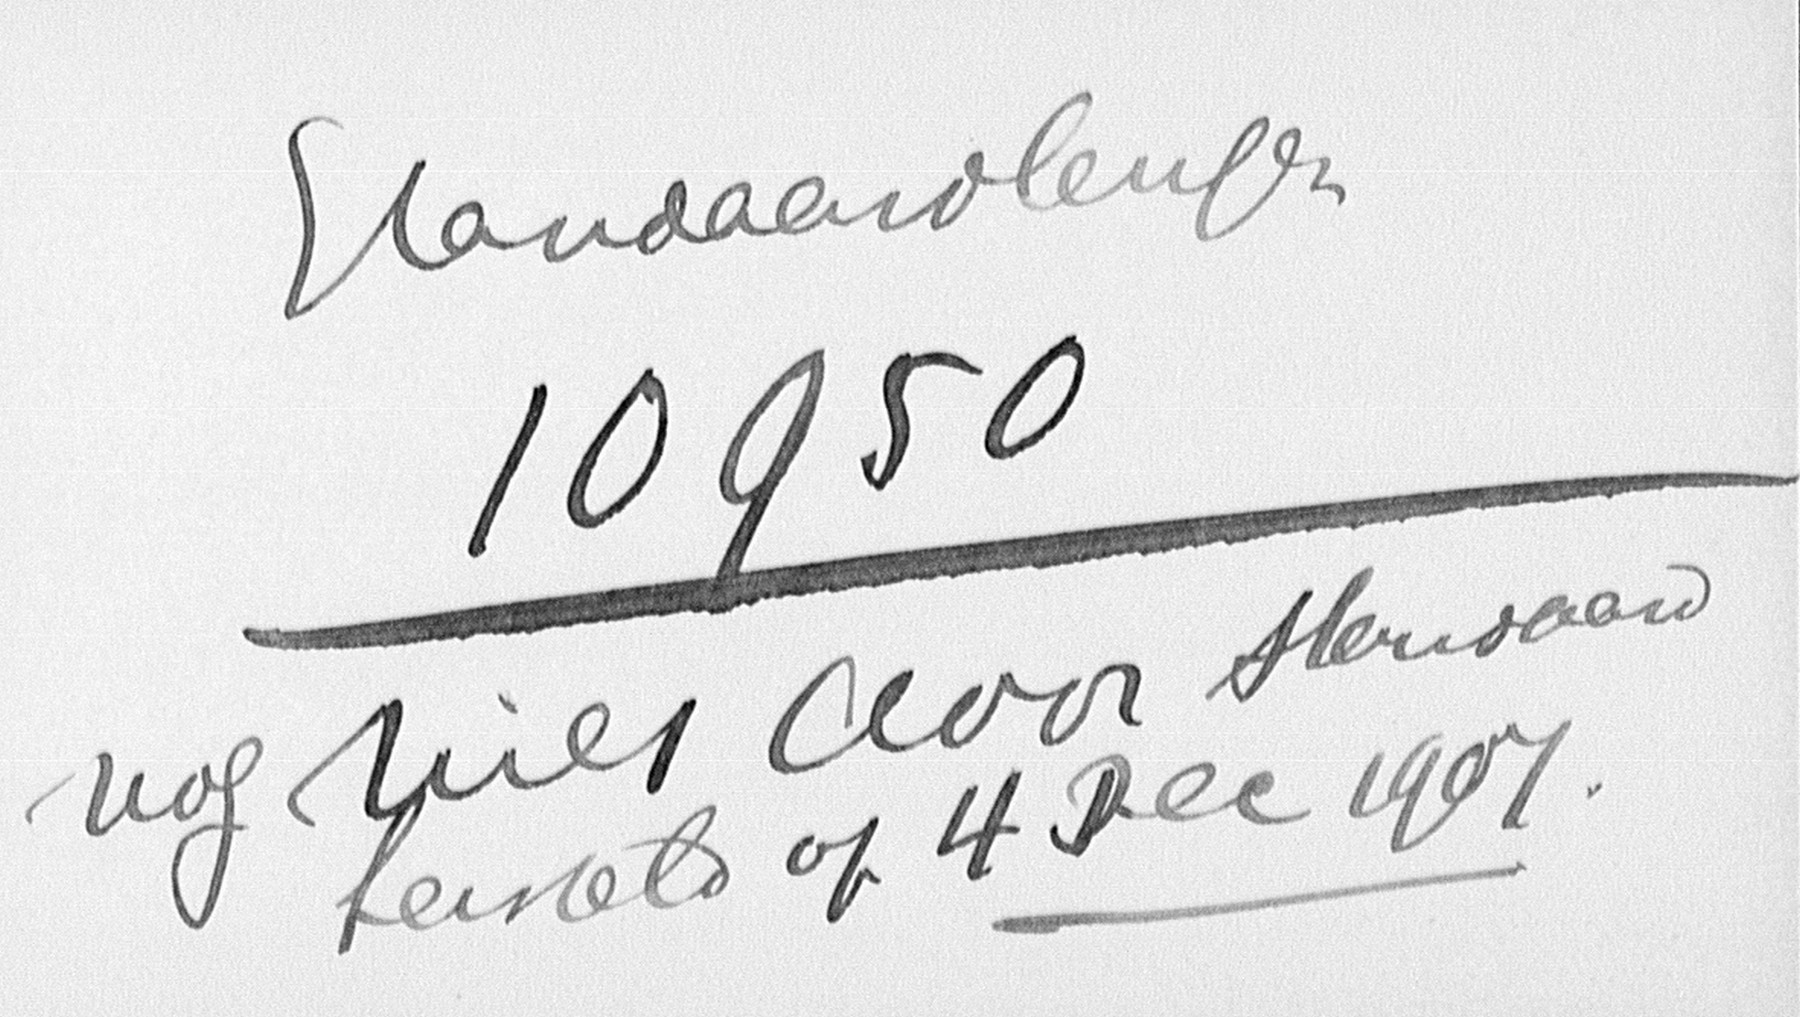 Standaardlengte
10950
nog niet door Standaard
op 4 Dec 1907.